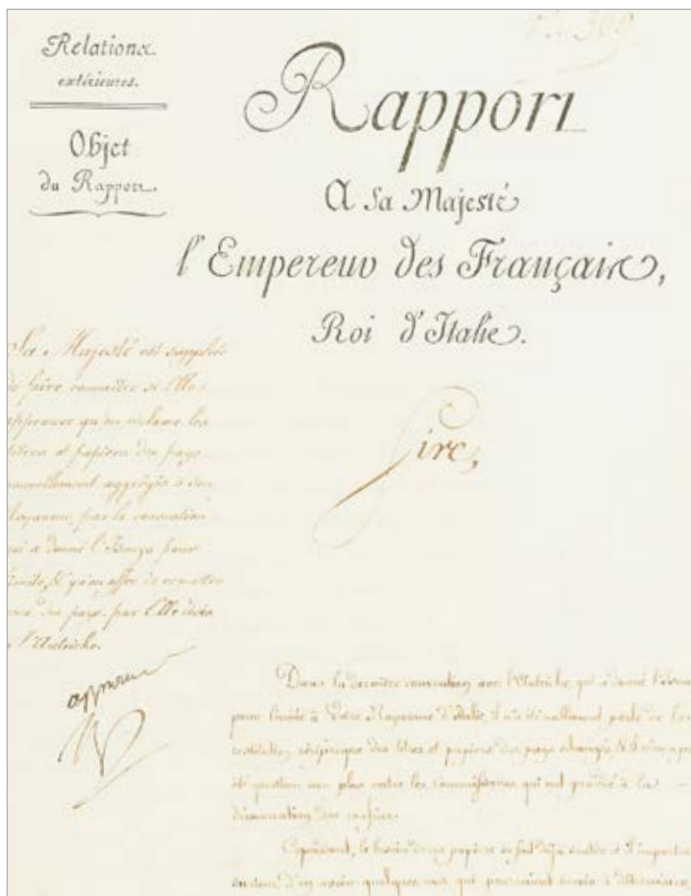 Relations
extérieures.
Objet
du Rapport.
Rapport
A Sa Majesté
l'Empereur des Français,
Roi d'Italie.
Sa Majesté est suppliée
de faire connaître si Elle
approuve qu'on réclame les
titres et papiers du pays
nouvellement aggrégés à son
Royaume, par la convention
qui a donné l'Isonzo pour
limite, & qu'on offre de remettre
ceux du pays par Elle cédés
à l'Autriche.
approuvé
N
Sire,
Dans la dernière convention avec l'Autriche, qui a donné l'Isonzo
pour limite à Votre Royaume d'Italie, il n'a été nullement parlé de la
restitution réciproque des titres et papiers des pays échangés. Il n'en a pas
été question non plus entre les Commissaires qui ont procédé à la
démarcation des confins.
Cependant, le besoin de ces papiers se fait déjà sentir et il importe
d'en avoir quelques uns qui pourraient servir à déterminer